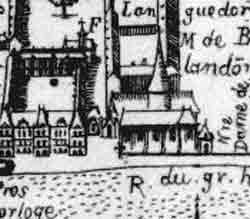 F
Lan
guedor
M de B
landon
Nre
Dome de
R du gr. h
ros
orloge